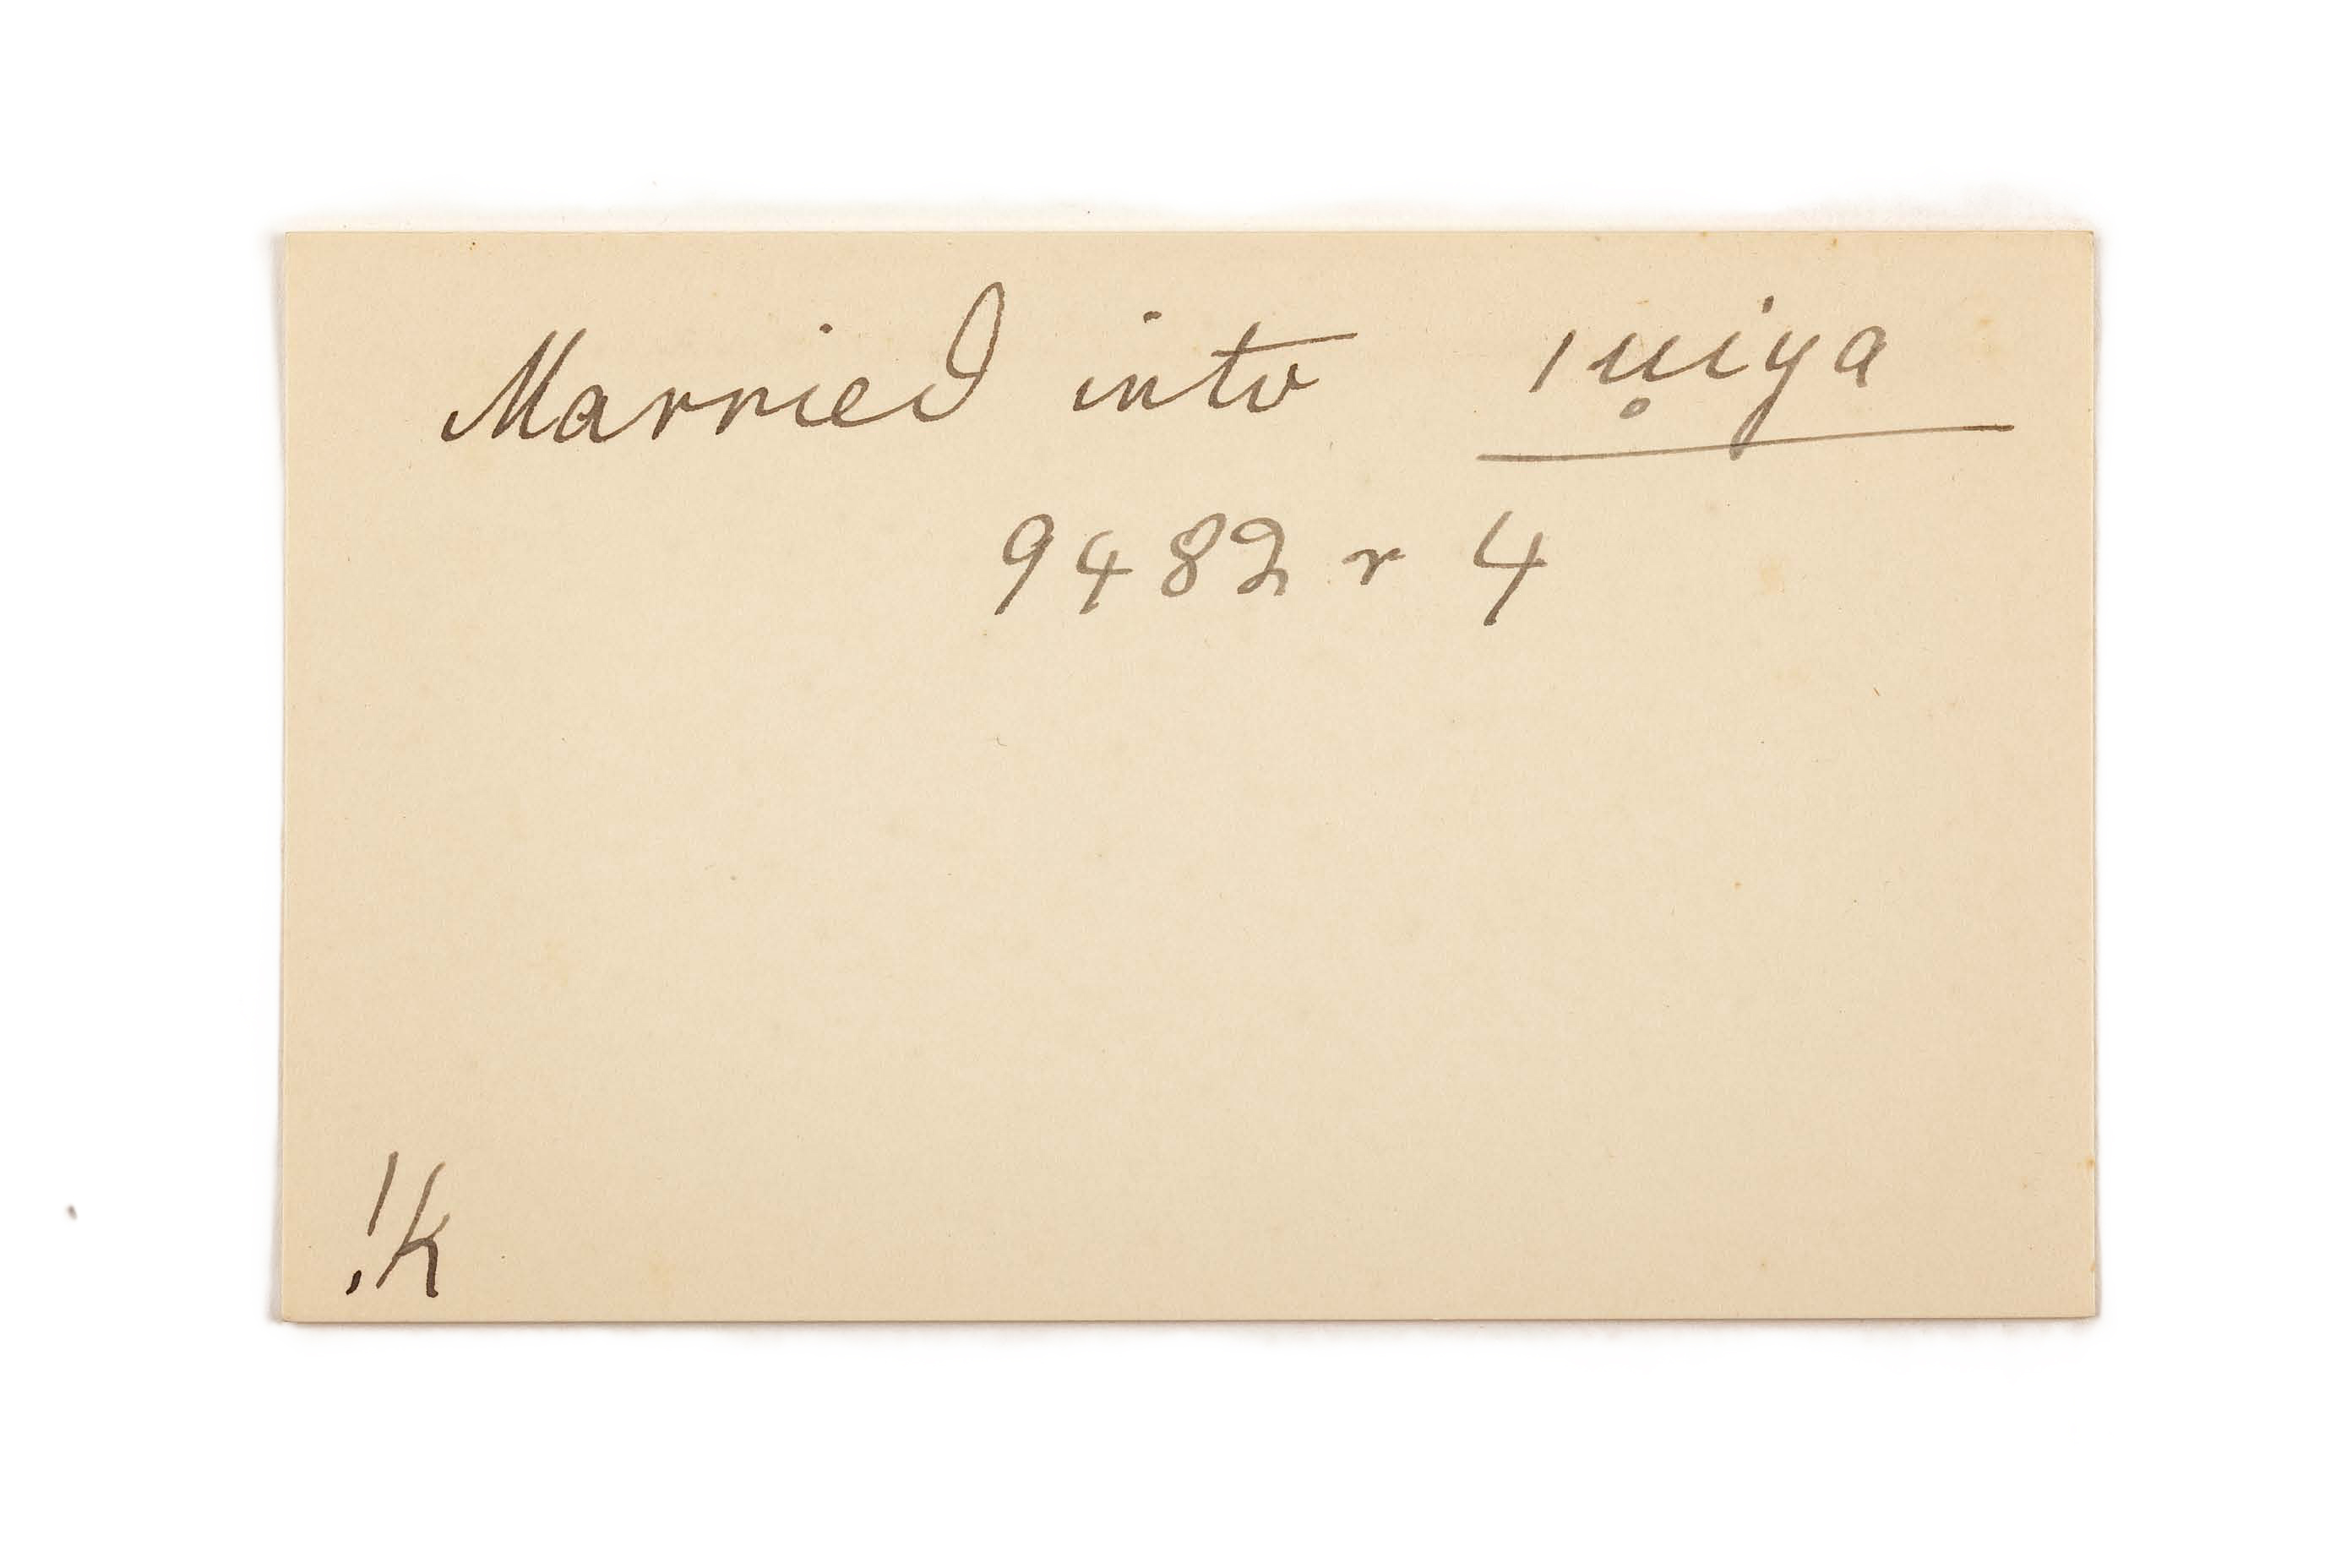 Married into ıu̥iya
9482 r 4
!k